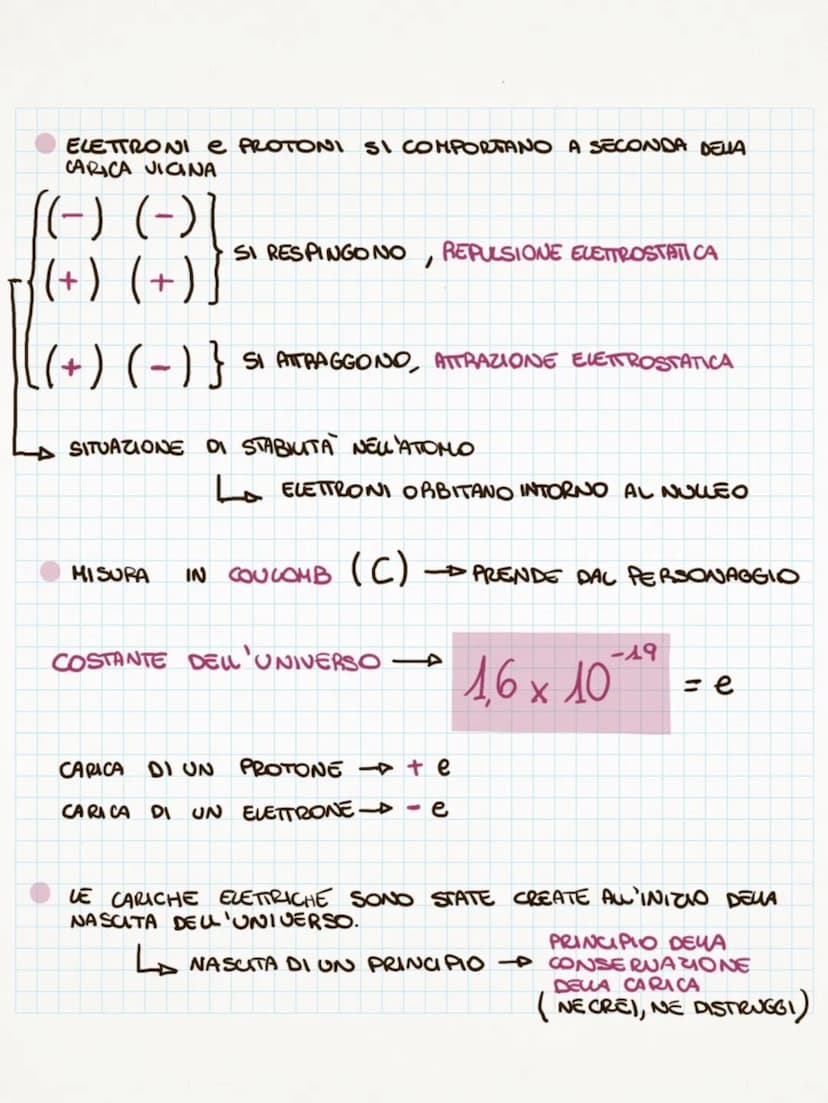 ELETTRONI e PROTONI SI COMPORTANO A SECONDA DELLA
CARICA VICINA
(-) (-)
SI RESPINGONO, REPULSIONE ELETTROSTATICA
(+) (+)
(+) (-) } SI ATTRAGGONO, ATTRAZIONE ELETTROSTATICA
→ SITUAZIONE DI STABILITÀ NELL'ATOMO
→ ELETTRONI ORBITANO INTORNO AL NUCLEO
MISURA IN COULOMB (C) → PRENDE DAL PERSONAGGIO
COSTANTE DELL'UNIVERSO → 1,6 x 10^-19 = e
CARICA DI UN PROTONE → + e
CARICA DI UN ELETTRONE → - e
LE CARICHE ELETTRICHE SONO STATE CREATE ALL'INIZIO DELLA
NASCITA DELL'UNIVERSO.
→ NASCITA DI UN PRINCIPIO → PRINCIPIO DELLA
CONSERVAZIONE
DELLA CARICA
(NE CREI, NE DISTRUGGI)